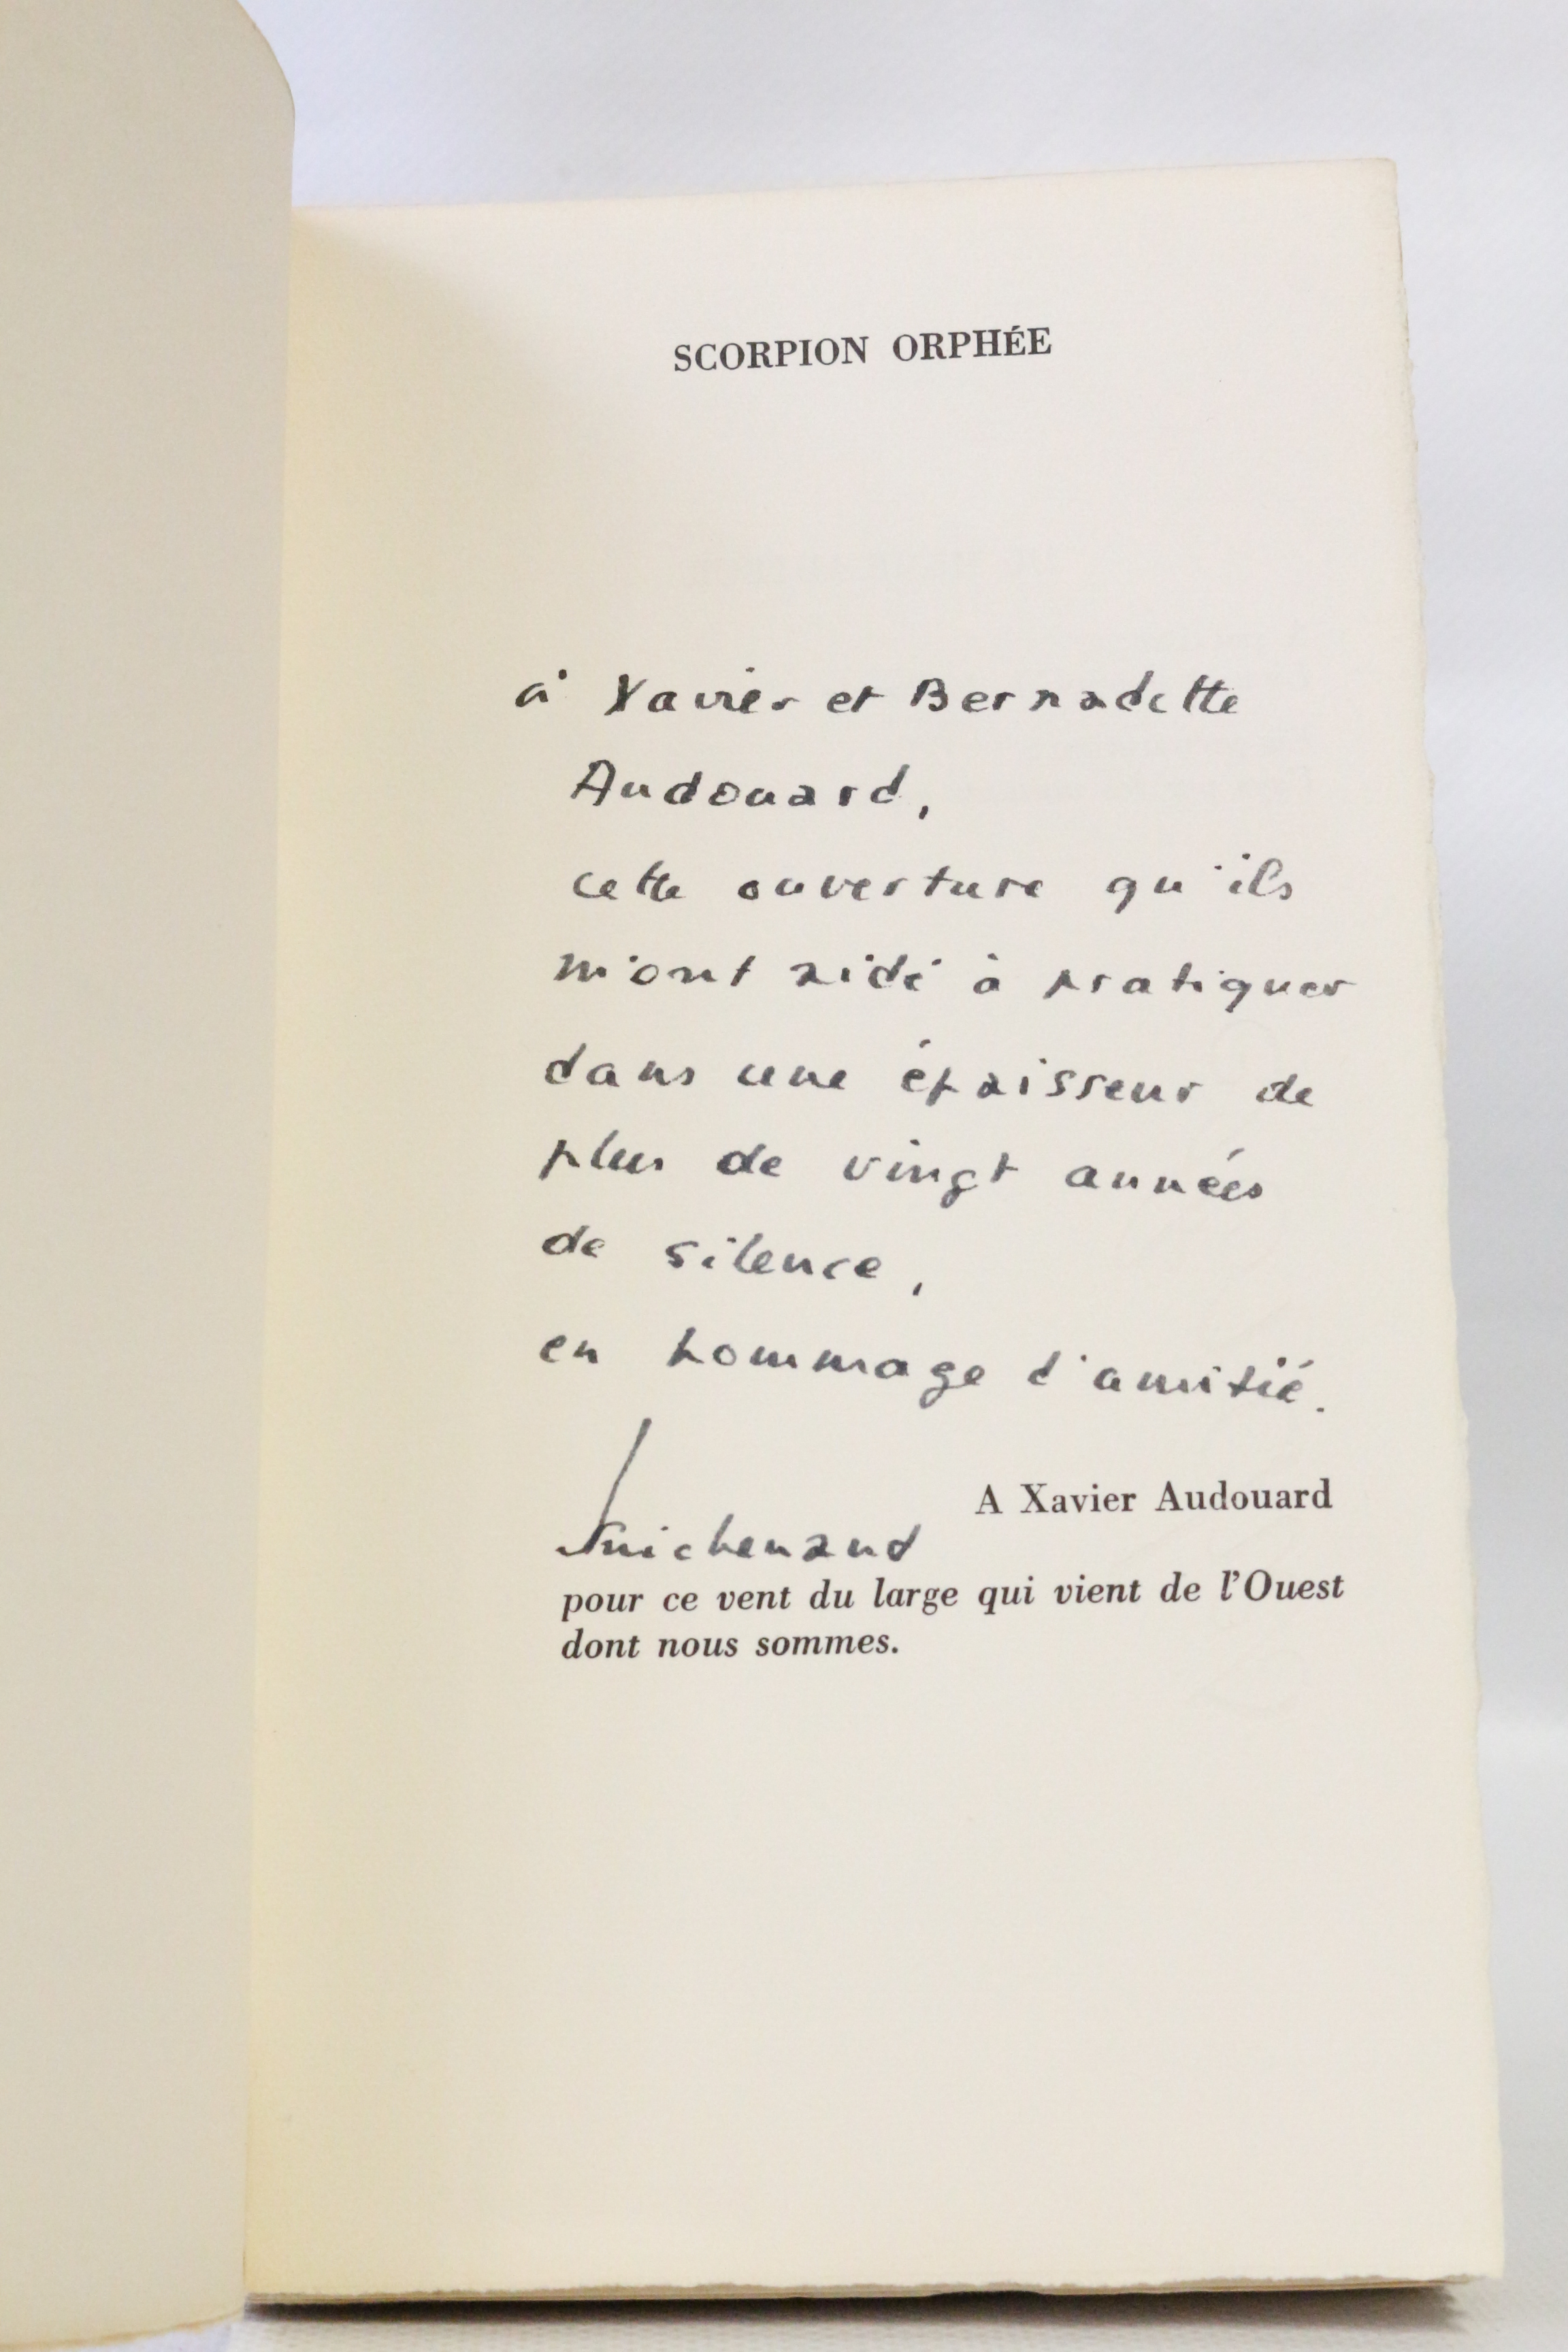 SCORPION ORPHÉE
à Xavier et Bernadette
Audouard,
cette ouverture qu'ils
m'ont aidé à pratiquer
dans une épaisseur de
plus de vingt années
de silence,
en hommage d'amitié.
A Xavier Audouard
Guichenaud
pour ce vent du large qui vient de l'Ouest
dont nous sommes.